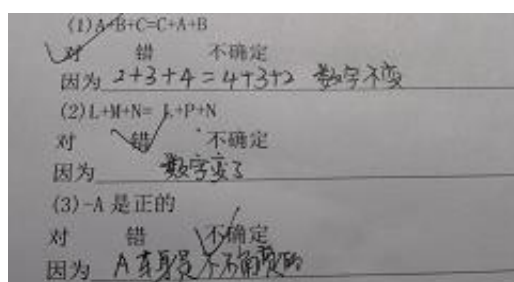 (1)A+B+C=C+A+B
对 错 不确定
因为 2+3+4=4+3+2 数字不变
(2)L+M+N= L+P+N
对 错 不确定
因为 数字变了
(3)-A 是正的
对 错 不确定
因为 A本身是不确定的